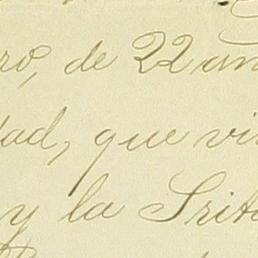 ro, de 22 añ
dad, que vi
y la Srita